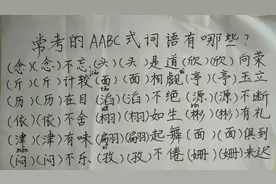 常考的AABC式词语有哪些?
(念)(念)不忘(头)(头)是道(欣)(欣)向荣
(斤)(斤)计较(面)(面)相觑(亭)(亭)玉立
(历)(历)在目(滔)(滔)不绝(源)(源)不断
(依)(依)不舍(栩)(栩)如生(彬)(彬)有礼
(津)(津)有味(翩)(翩)起舞(面)(面)俱到
(闷)(闷)不乐(孜)(孜)不倦(姗)(姗)来迟